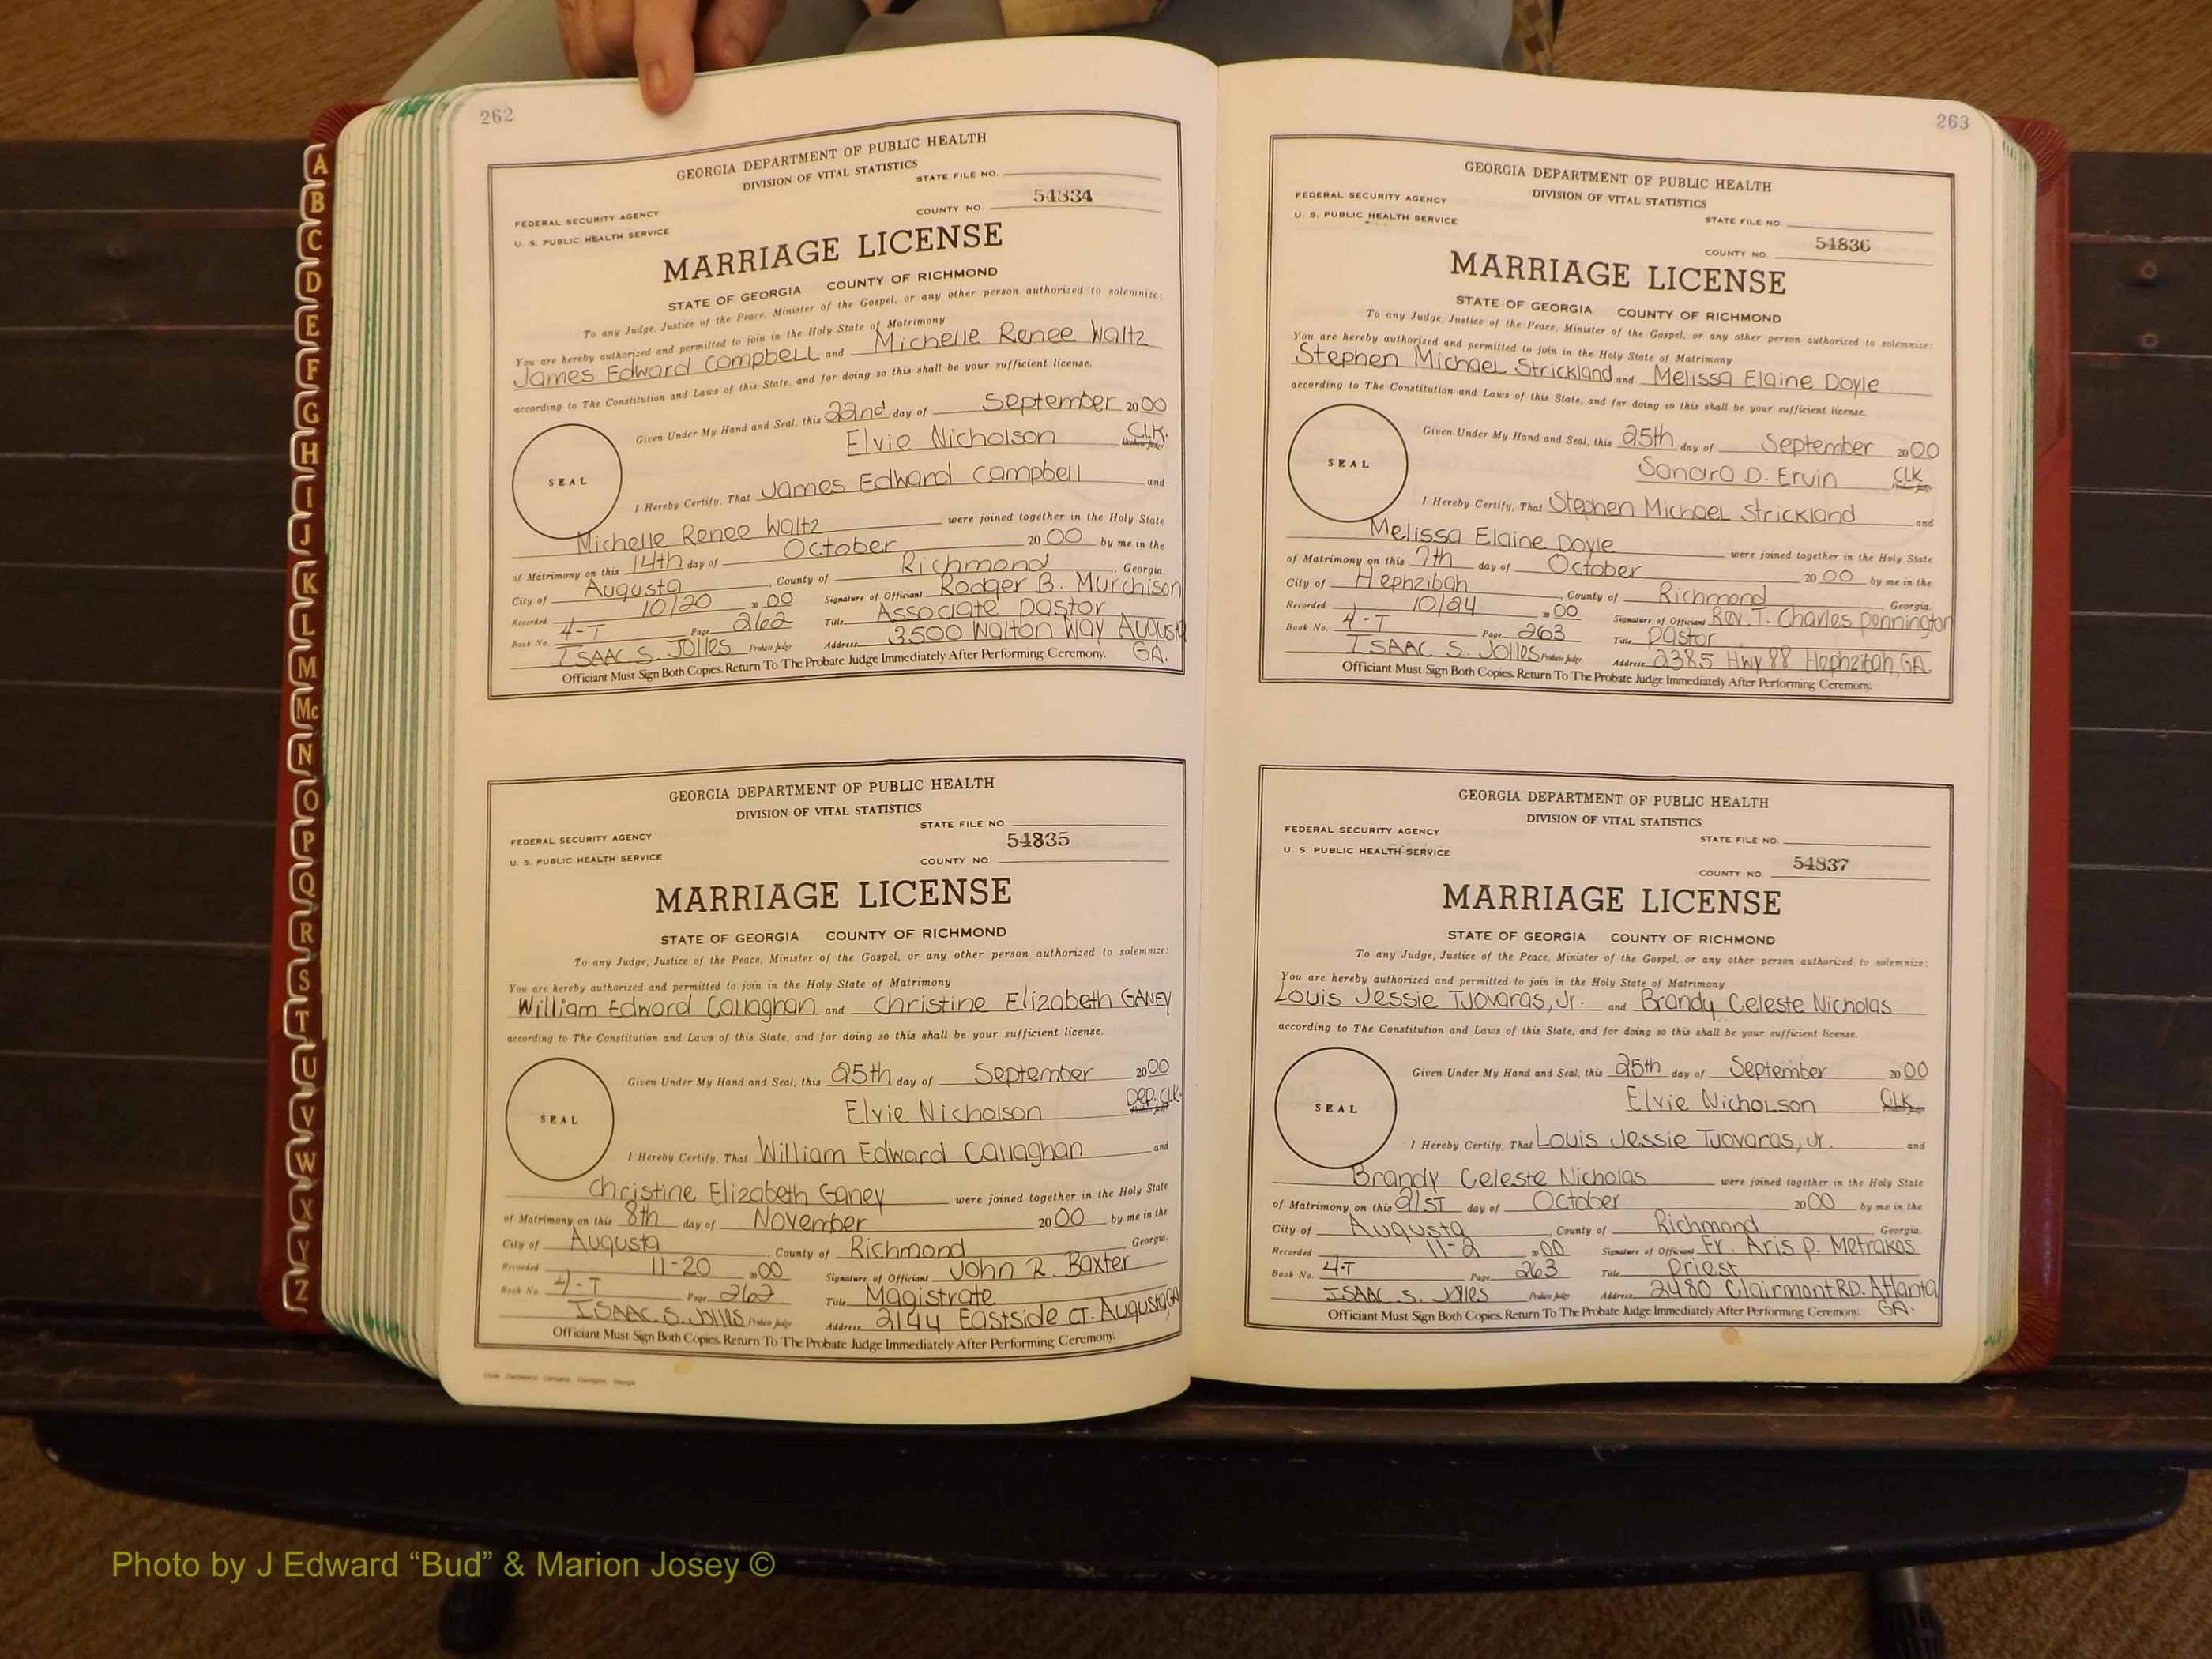 262
GEORGIA DEPARTMENT OF PUBLIC HEALTH
DIVISION OF VITAL STATISTICS
STATE FILE NO.
FEDERAL SECURITY AGENCY
U. S. PUBLIC HEALTH SERVICE
COUNTY NO. 54834
MARRIAGE LICENSE
STATE OF GEORGIA COUNTY OF RICHMOND
To any Judge, Justice of the Peace, Minister of the Gospel, or any other person authorized to solemnize:
You are hereby authorized and permitted to join in the Holy State of Matrimony
James Edward Campbell and Michelle Renee Waltz
according to The Constitution and Laws of this State, and for doing so this shall be your sufficient license.
Given Under My Hand and Seal, this 22nd day of September 2000
Elvie Nicholson CLK.
SEAL
I Hereby Certify, That James Edward Campbell and
Michelle Renee Waltz were joined together in the Holy State
of Matrimony on this 14th day of October 2000 by me in the
City of Augusta, County of Richmond, Georgia.
Recorded 10/20 2000 Signature of Officiant Rodger B. Murchison
Book No. 4-T Page 262 Title Associate Pastor
ISAAC S. JOLLES Probate Judge Address 3500 Walton Way Augusta GA.
Officiant Must Sign Both Copies. Return To The Probate Judge Immediately After Performing Ceremony.
GEORGIA DEPARTMENT OF PUBLIC HEALTH
DIVISION OF VITAL STATISTICS
STATE FILE NO.
FEDERAL SECURITY AGENCY
U. S. PUBLIC HEALTH SERVICE
COUNTY NO 54835
MARRIAGE LICENSE
STATE OF GEORGIA COUNTY OF RICHMOND
To any Judge, Justice of the Peace, Minister of the Gospel, or any other person authorized to solemnize:
You are hereby authorized and permitted to join in the Holy State of Matrimony
William Edward Callaghan and Christine Elizabeth GANEY
according to The Constitution and Laws of this State, and for doing so this shall be your sufficient license.
Given Under My Hand and Seal, this 25th day of September 2000
Elvie Nicholson Dep. CLK.
SEAL
I Hereby Certify, That William Edward Callaghan and
Christine Elizabeth Ganey were joined together in the Holy State
of Matrimony on this 8th day of November 2000 by me in the
City of Augusta, County of Richmond, Georgia.
Recorded 11-20 2000 Signature of Officiant John R. Baxter
Book No. 4-T Page 262 Title Magistrate
ISAAC S. Jolles Probate Judge Address 2144 Eastside CT. Augusta, GA
Officiant Must Sign Both Copies. Return To The Probate Judge Immediately After Performing Ceremony.
263
GEORGIA DEPARTMENT OF PUBLIC HEALTH
DIVISION OF VITAL STATISTICS
FEDERAL SECURITY AGENCY
U. S. PUBLIC HEALTH SERVICE
STATE FILE NO.
COUNTY NO. 54836
MARRIAGE LICENSE
STATE OF GEORGIA COUNTY OF RICHMOND
To any Judge, Justice of the Peace, Minister of the Gospel, or any other person authorized to solemnize:
You are hereby authorized and permitted to join in the Holy State of Matrimony
Stephen Michael Strickland and Melissa Elaine Doyle
according to The Constitution and Laws of this State, and for doing so this shall be your sufficient license.
Given Under My Hand and Seal, this 25th day of September 2000
Sandra D. Ervin CLK
SEAL
I Hereby Certify, That Stephen Michael Strickland and
Melissa Elaine Doyle were joined together in the Holy State
of Matrimony on this 7th day of October 2000 by me in the
City of Hephzibah, County of Richmond Georgia.
Recorded 10/24 2000 Signature of Officiant Rev. T. Charles Pennington
Book No. 4-T Page 263 Title Pastor
ISAAC S. Jolles Probate Judge Address 2385 Hwy 88 Hephzibah, GA.
Officiant Must Sign Both Copies. Return To The Probate Judge Immediately After Performing Ceremony.
GEORGIA DEPARTMENT OF PUBLIC HEALTH
DIVISION OF VITAL STATISTICS
FEDERAL SECURITY AGENCY
U. S. PUBLIC HEALTH SERVICE
STATE FILE NO.
COUNTY NO. 54837
MARRIAGE LICENSE
STATE OF GEORGIA COUNTY OF RICHMOND
To any Judge, Justice of the Peace, Minister of the Gospel, or any other person authorized to solemnize:
You are hereby authorized and permitted to join in the Holy State of Matrimony
Louis Jessie Tjovaras, Jr. and Brandy Celeste Nicholas
according to The Constitution and Laws of this State, and for doing so this shall be your sufficient license.
Given Under My Hand and Seal, this 25th day of September 2000
Elvie Nicholson CLK
SEAL
I Hereby Certify, That Louis Jessie Tjovaras, Jr. and
Brandy Celeste Nicholas were joined together in the Holy State
of Matrimony on this 21ST day of October 2000 by me in the
City of Augusta, County of Richmond Georgia.
Recorded 11-2 2000 Signature of Officiant Fr. Aris P. Metrakos
Book No. 4-T Page 263 Title Priest
ISAAC S. Jolles Probate Judge Address 2480 Clairmont RD. Atlanta GA.
Officiant Must Sign Both Copies. Return To The Probate Judge Immediately After Performing Ceremony.
A
B
C
D
E
F
G
H
I
J
K
L
M
Mc
N
O
P
Q
R
S
T
U
V
W
X
Y
Z
Photo by J Edward “Bud” & Marion Josey ©